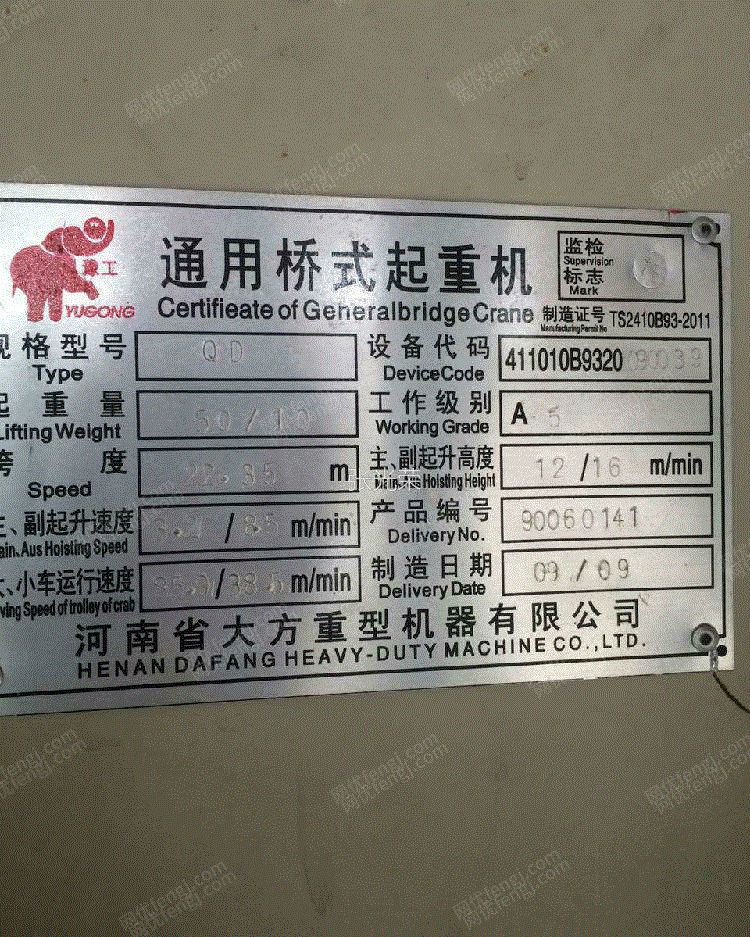 通用桥式起重机
Certifieate of Generalbridge Crane
监检
Supervision
标志
Mark
豫工
YUGONG
制造证号 TS2410B93-2011
Manufacturing Permit No
规格型号 QD
Type
设备代码 411010B9320
DeviceCode
起重量 50/10
Lifting Weight
工作级别 A 5
Working Grade
跨度 22.35 m
Speed
主、副起升高度 12/16 m/min
Hoisting Height
主、副起升速度 / m/min
Main、Aus Hoisting Speed
产品编号 90060141
Delivery No.
大、小车运行速度 m/min
Speed of trolley of crab
制造日期 09/09
Delivery Date
河南省大方重型机器有限公司
HENAN DAFANG HEAVY-DUTY MACHINE CO.,LTD.